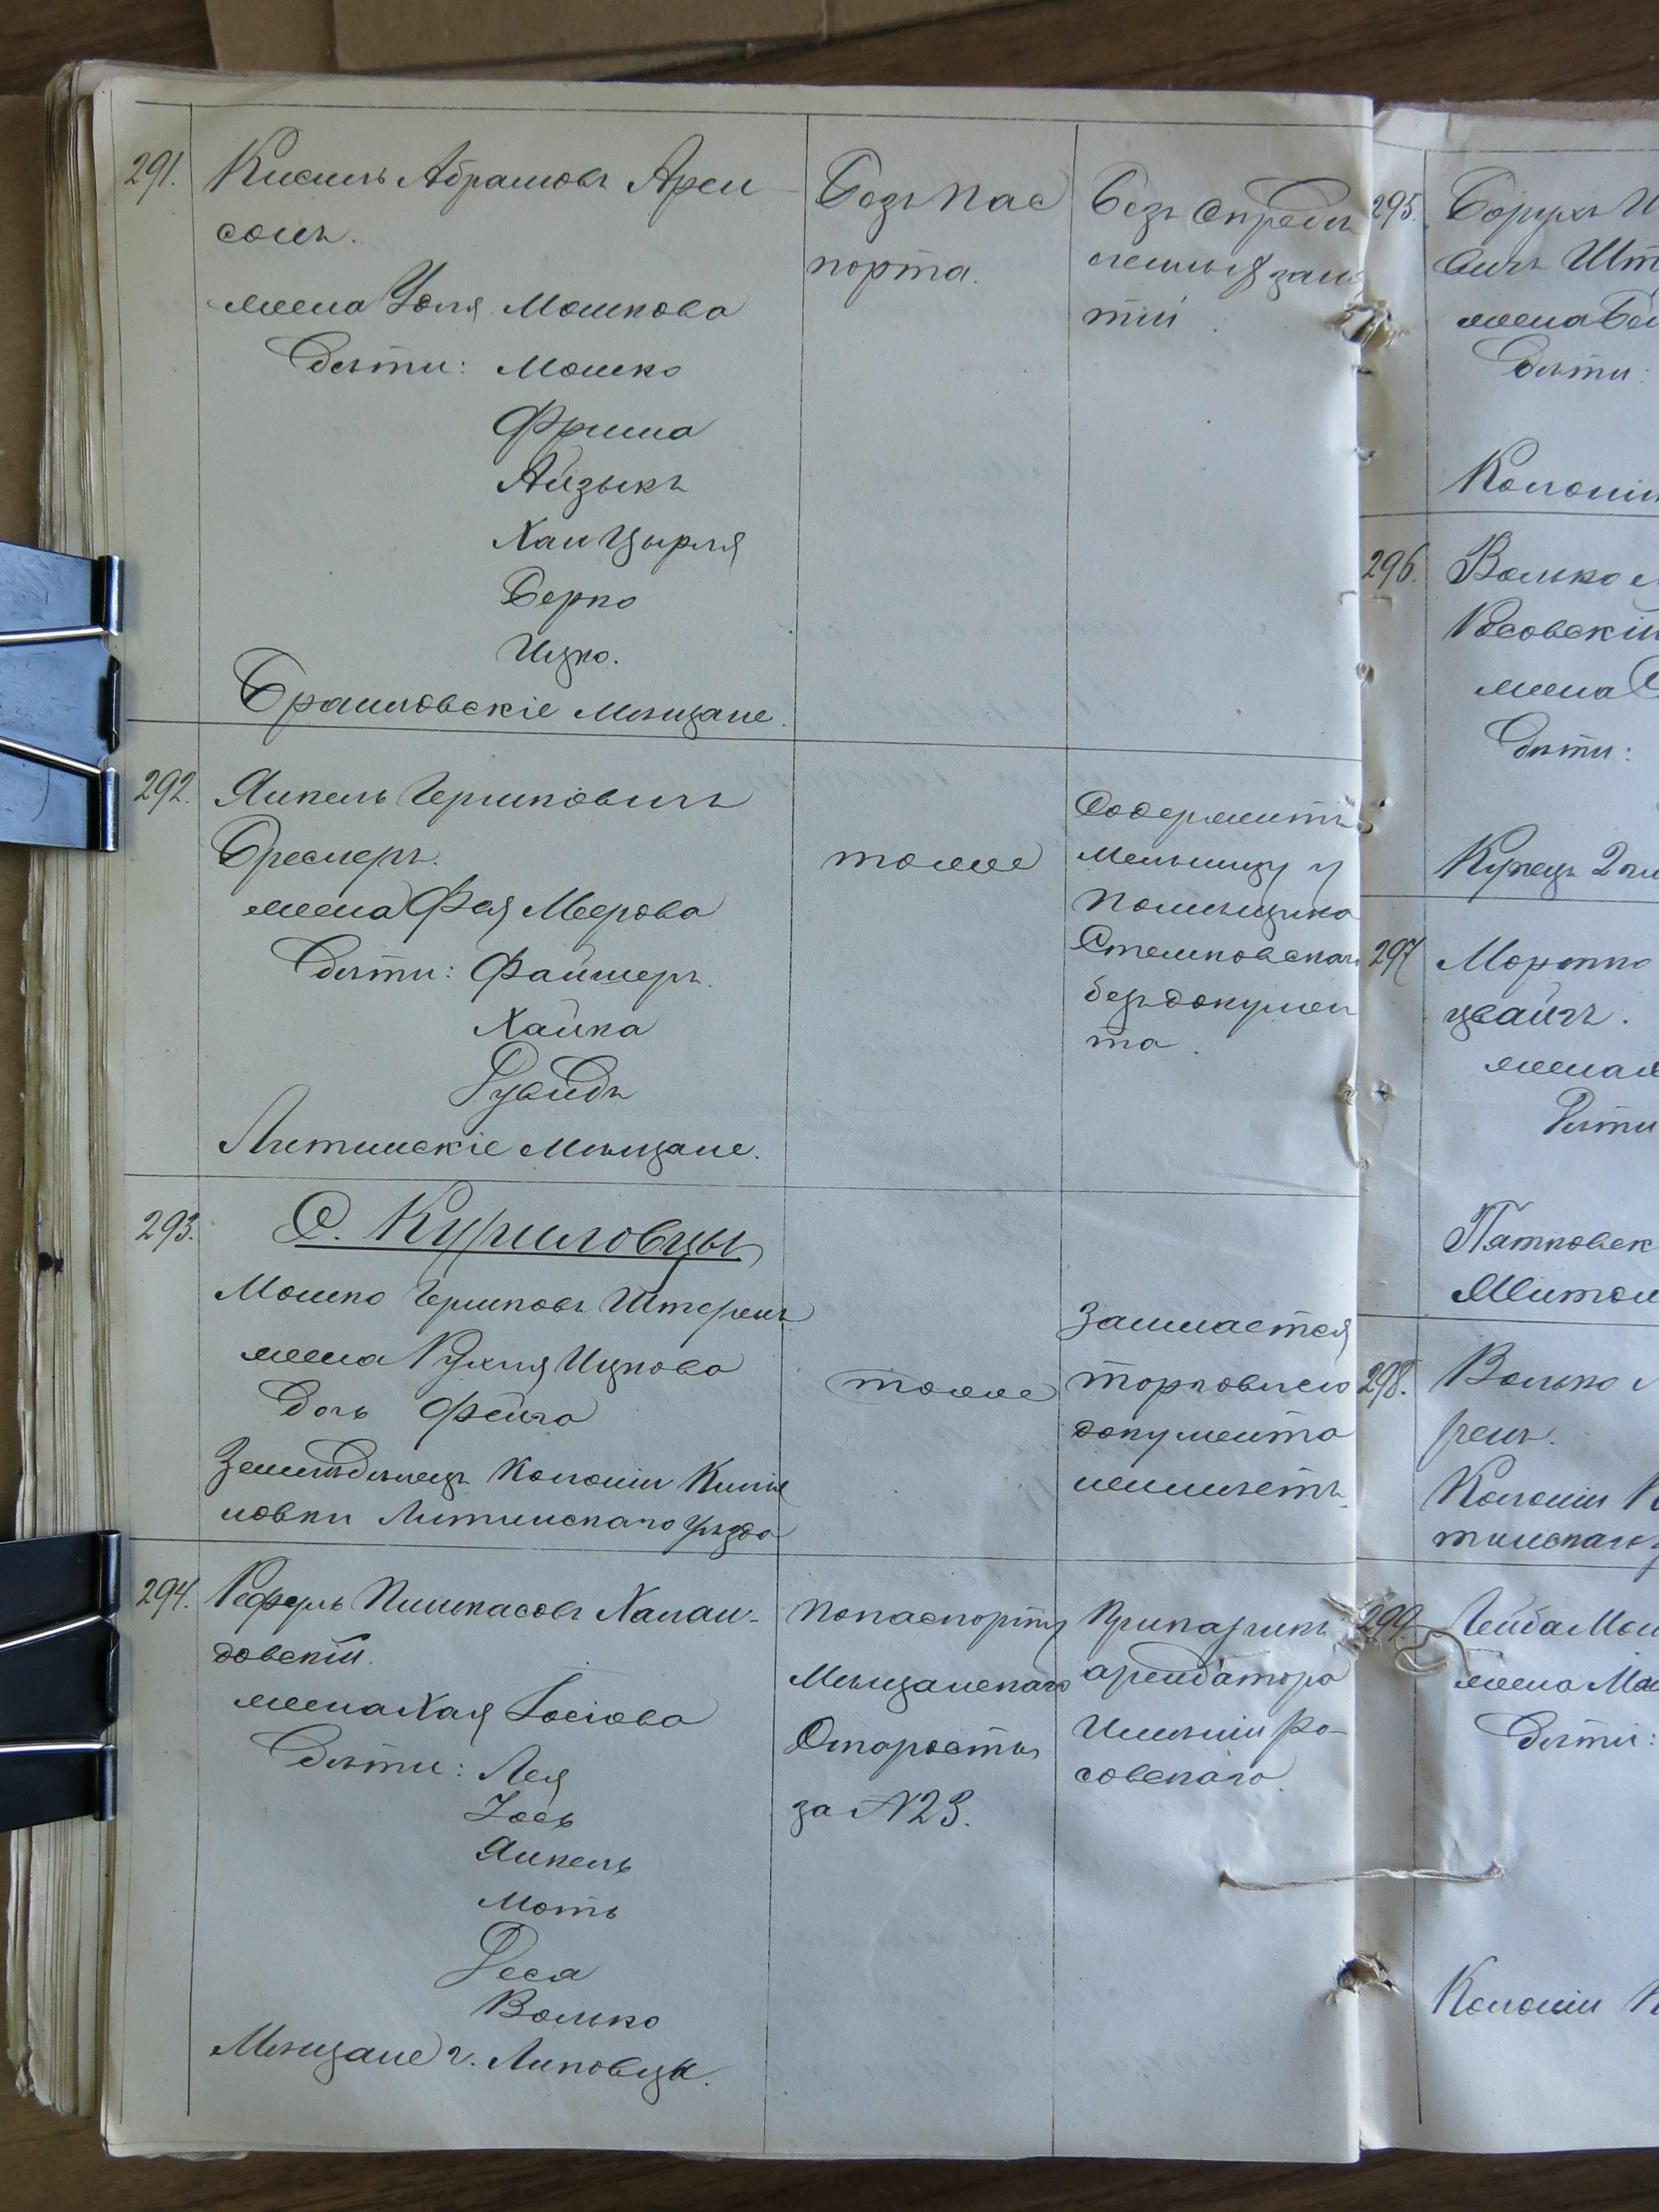 291.
Кисиль Абрамовъ Арен
сонъ.
жена Юля Мошкова
Дѣти: Мошко
Фрима
Айзыкъ
Хаи Цырля
Берко
Ицко.
Браиловскіе Мѣщане.
Безъ пас
порта.
Безъ опредѣ
ленныхъ заня
тій.
292.
Янкель Гершковичъ
Бреслеръ.
жена Фая Меерова
Дѣти: Файшеръ.
Хайка
Рувидъ
Литинскіе Мѣщане.
тоже
Содержитъ
Мельницу у
Помѣщика
Стемповскаго
безъ докумен
та.
293.
С. Куриловцы
Мошко Гершковъ Штернъ
жена Рухля Ицкова
Дочь Фейга
Земледѣлецъ Колоніи
новки Литинскаго уѣзда
тоже
Занимается
торговлею
документа
неимѣетъ.
294.
Пинкасовъ
довскій.
жена Хая Іосіова
Дѣти: Лея
Іось
Янкель
Моть
Реся
Волько
Мѣщане г. Липовца.
Попаспорту
Мѣщанскаго
Старосты
за №23.
Прикащикъ
арендатора
Имѣнія Ро-
совскаго.
295.
Борухъ
вичъ Шт
жена Бе
Дѣти:
Колоніи
296.
Волько
Росовскій
жена
Дѣти:
Купецъ 2
297
Мортко
цвайгъ.
жена
Дѣти
Пятковск
Житом
298.
Волько
ренъ.
Колоніи К
тинскаго
299.
Лейба Мош
жена Ма
Дѣти:
Колоніи К